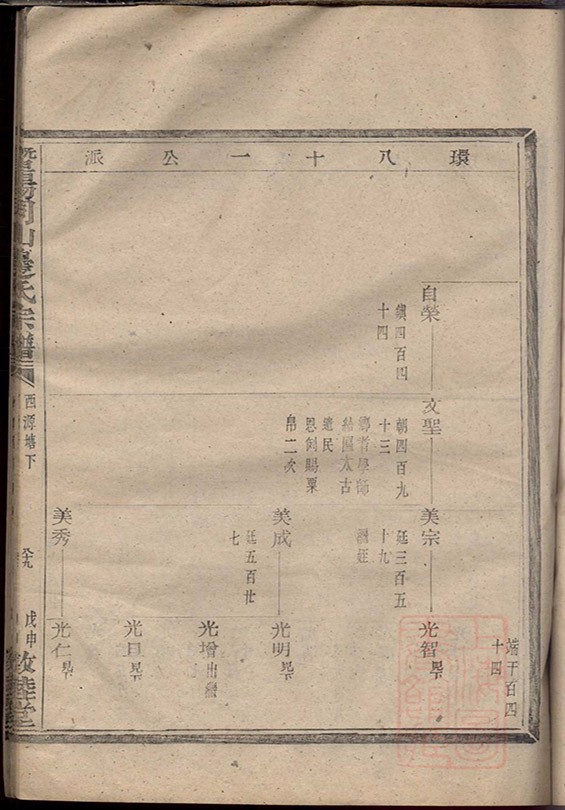 環八十一公派
端千百四
十四
自榮
鎮四百四
十四
文聖
朝四百九
十三
鄉耆學師
給匾太古
遺民
恩例賜粟
帛二次
美宗
廷三百五
十九
光智
美成
廷五百廿
七
光明
光增 出繼
光日
美秀
光仁
暨陽同山邊氏宗譜
西源塘下
戊申
敦睦堂